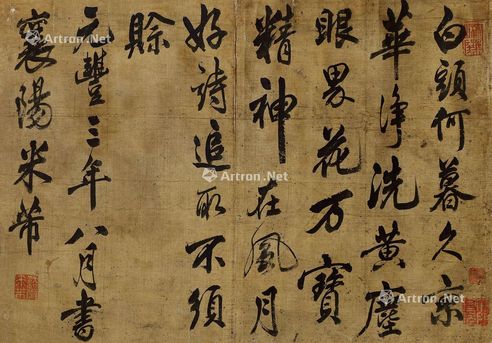 白頭何暮久京
華淨洗黃塵
眼界花万寶
精神在風月
好詩追取不須
賒
元豐三年八月書
襄陽米芾
Artron.Net
Artron.Net
Artron.Net
Artron.Net
Artron.Net